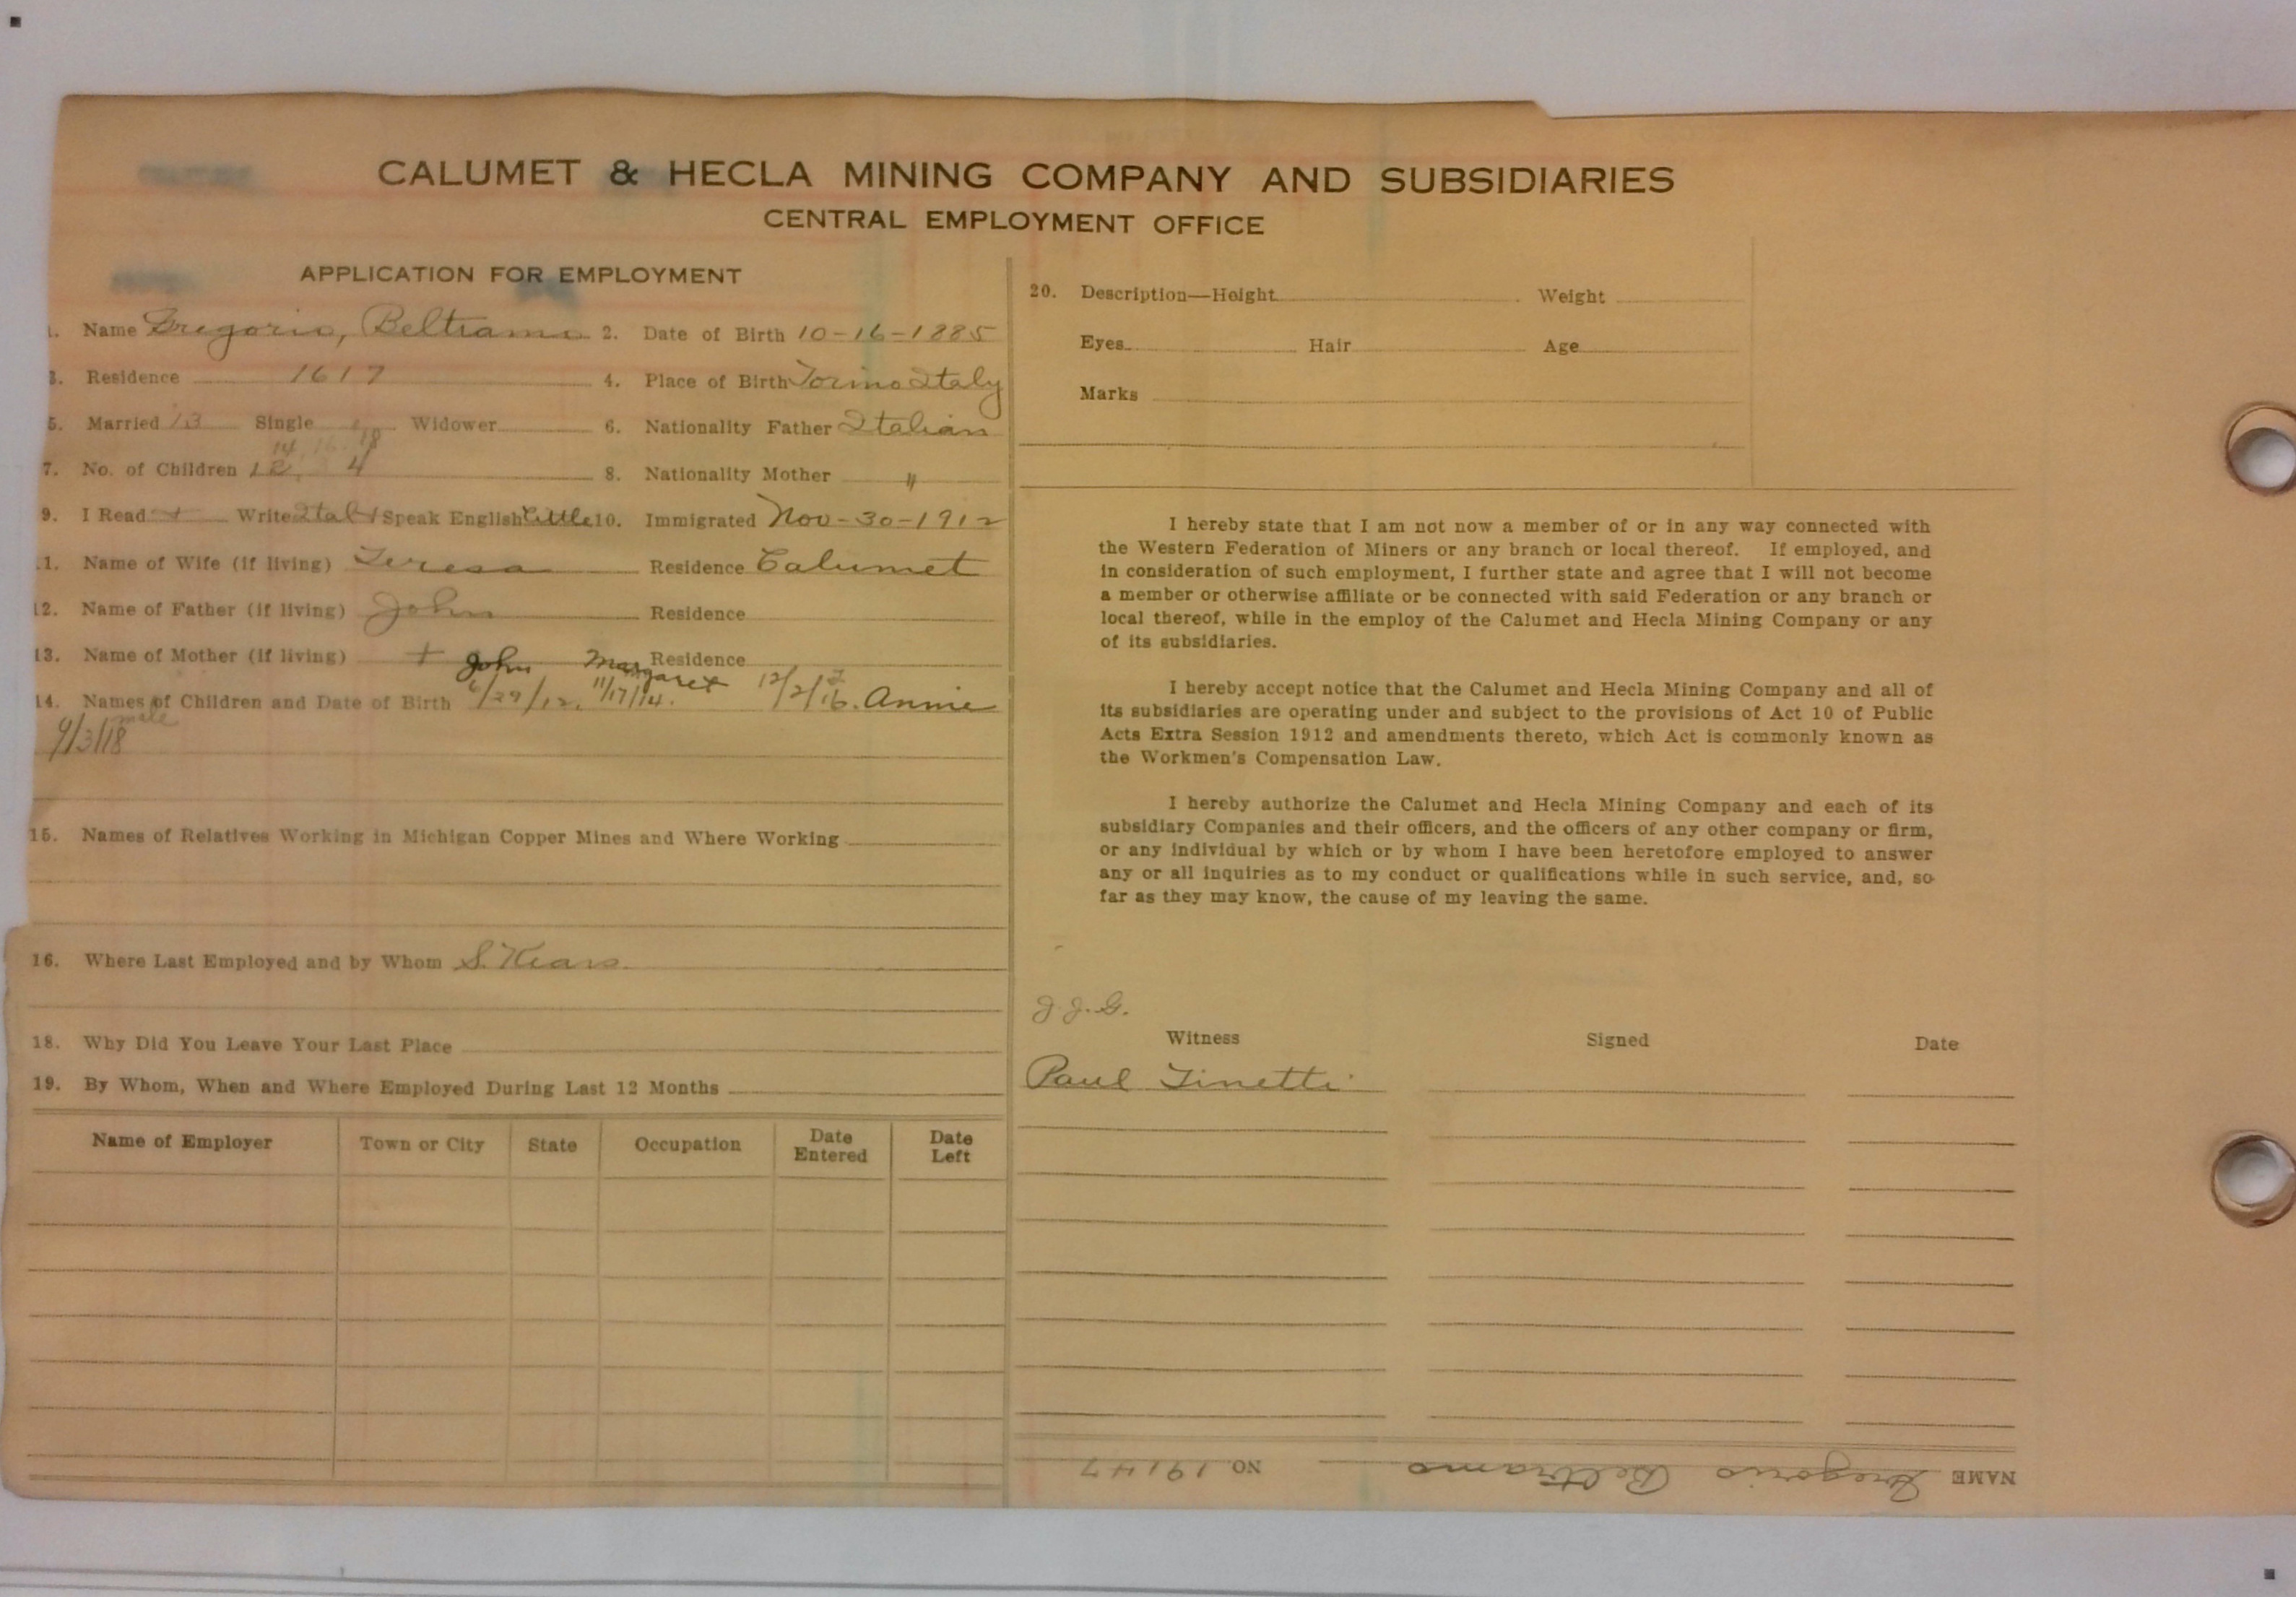 CALUMET & HECLA MINING COMPANY AND SUBSIDIARIES
CENTRAL EMPLOYMENT OFFICE
APPLICATION FOR EMPLOYMENT
1. Name Gregorio, Beltramo 2. Date of Birth 10-16-1885
3. Residence 1617 4. Place of Birth Torino Italy
5. Married 13 Single Widower 6. Nationality Father Italian
14, 16-18
7. No. of Children 12, 4 8. Nationality Mother "
9. I Read + Write Ital + Speak English little 10. Immigrated Nov-30-1912
11. Name of Wife (if living) Teresa Residence Calumet
12. Name of Father (if living) John Residence
13. Name of Mother (if living) + Residence
John Margaret
14. Names of Children and Date of Birth 6/29/12, 11/17/14. 12/2/16. Annie
male
9/3/18
15. Names of Relatives Working in Michigan Copper Mines and Where Working
16. Where Last Employed and by Whom S. Kears.
18. Why Did You Leave Your Last Place
19. By Whom, When and Where Employed During Last 12 Months
Name of Employer Town or City State Occupation Date Entered Date Left
20. Description—Height Weight
Eyes Hair Age
Marks
I hereby state that I am not now a member of or in any way connected with
the Western Federation of Miners or any branch or local thereof. If employed, and
in consideration of such employment, I further state and agree that I will not become
a member or otherwise affiliate or be connected with said Federation or any branch or
local thereof, while in the employ of the Calumet and Hecla Mining Company or any
of its subsidiaries.
I hereby accept notice that the Calumet and Hecla Mining Company and all of
its subsidiaries are operating under and subject to the provisions of Act 10 of Public
Acts Extra Session 1912 and amendments thereto, which Act is commonly known as
the Workmen's Compensation Law.
I hereby authorize the Calumet and Hecla Mining Company and each of its
subsidiary Companies and their officers, and the officers of any other company or firm,
or any individual by which or by whom I have been heretofore employed to answer
any or all inquiries as to my conduct or qualifications while in such service, and, so
far as they may know, the cause of my leaving the same.
J.J.G.
Witness Signed Date
Paul Tinetti
NAME Gregorio Beltramo NO 19147